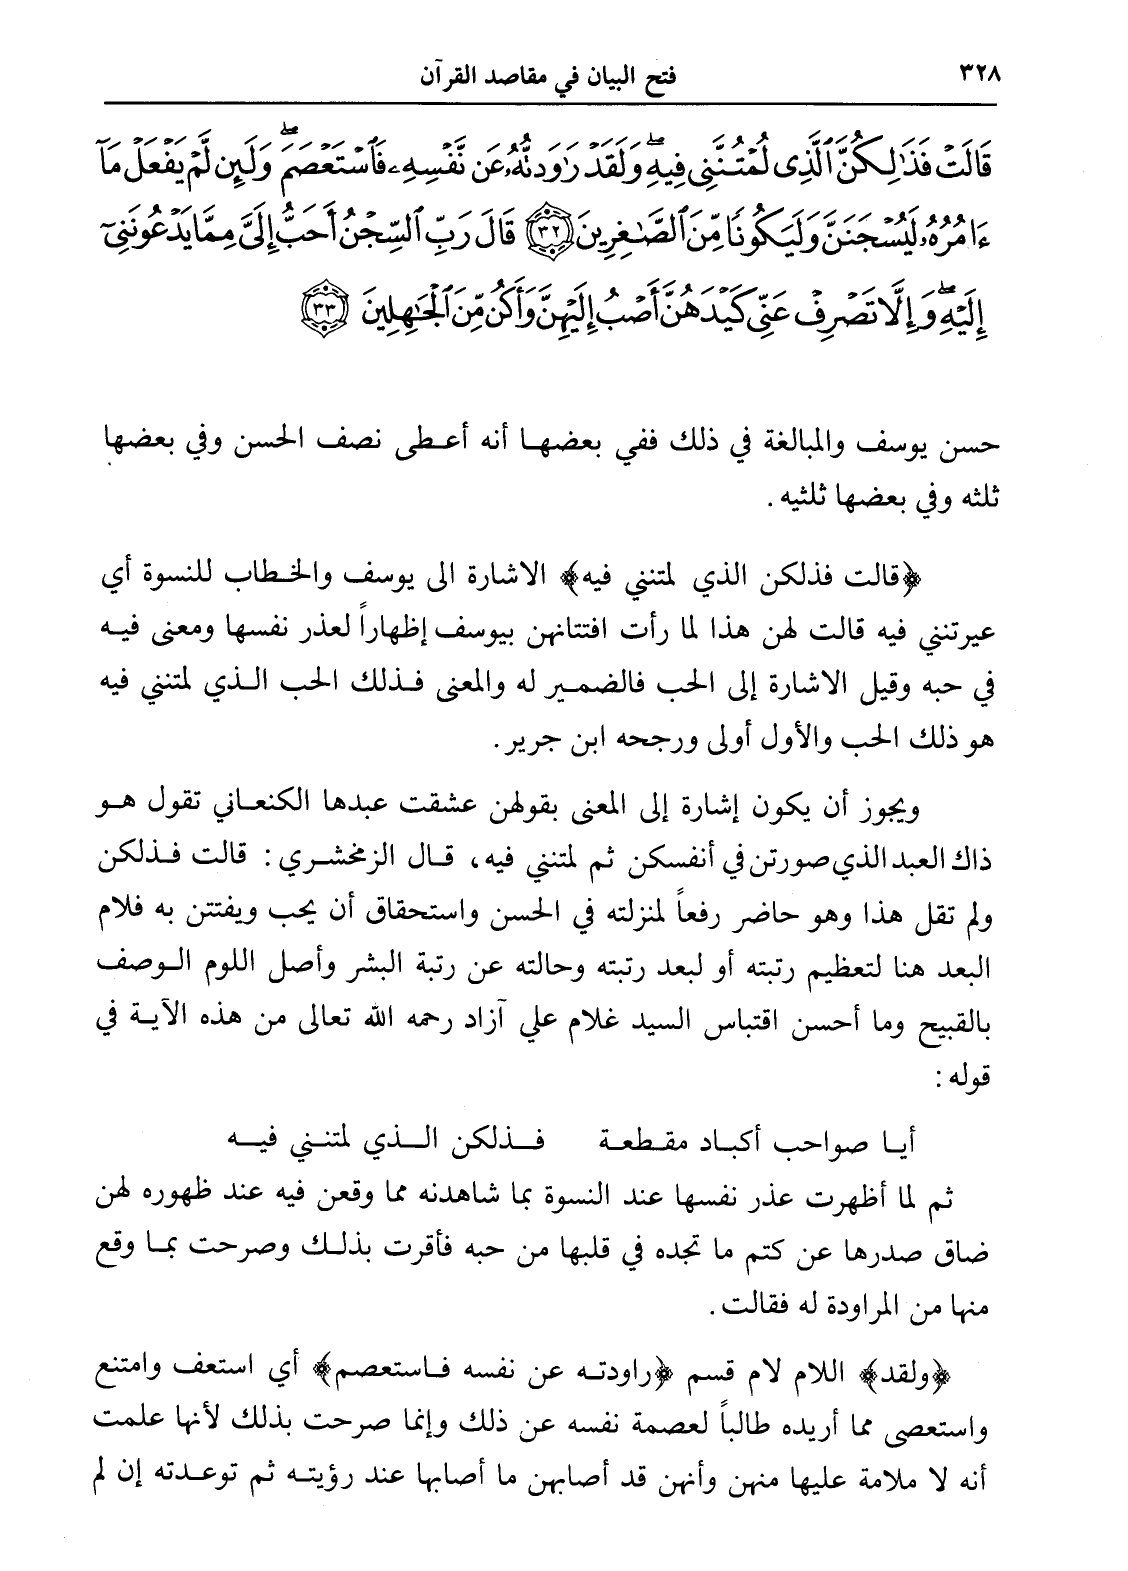 ٣٢٨ فتح البيان في مقاصد القرآن
قَالَتْ فَذَٰلِكُنَّ ٱلَّذِى لُمْتُنَّنِى فِيهِ ۖ وَلَقَدْ رَٰوَدتُّهُۥ عَن نَّفْسِهِۦ فَٱسْتَعْصَمَ ۖ وَلَئِن لَّمْ يَفْعَلْ مَآ
ءَامُرُهُۥ لَيُسْجَنَنَّ وَلَيَكُونًا مِّنَ ٱلصَّٰغِرِينَ ٣٢ قَالَ رَبِّ ٱلسِّجْنُ أَحَبُّ إِلَىَّ مِمَّا يَدْعُونَنِىٓ
إِلَيْهِ ۖ وَإِلَّا تَصْرِفْ عَنِّى كَيْدَهُنَّ أَصْبُ إِلَيْهِنَّ وَأَكُن مِّنَ ٱلْجَٰهِلِينَ ٣٣
حسن يوسف والمبالغة في ذلك ففي بعضها أنه أعطى نصف الحسن وفي بعضها
ثلثه وفي بعضها ثلثيه .
﴿قالت فذلكن الذي لمتنني فيه﴾ الاشارة الى يوسف والخطاب للنسوة أي
عيرتنني فيه قالت لهن هذا لما رأت افتتانهن بيوسف إظهاراً لعذر نفسها ومعنى فيه
في حبه وقيل الاشارة إلى الحب فالضمير له والمعنى فذلك الحب الذي لمتنني فيه
هو ذلك الحب والأول أولى ورجحه ابن جرير .
ويجوز أن يكون إشارة إلى المعنى بقولهن عشقت عبدها الكنعاني تقول هو
ذاك العبد الذي صورتن في أنفسكن ثم لمتنني فيه ، قال الزمخشري : قالت فذلكن
ولم تقل هذا وهو حاضر رفعاً لمنزلته في الحسن واستحقاق أن يحب ويفتتن به فلام
البعد هنا لتعظيم رتبته أو لبعد رتبته وحالته عن رتبة البشر وأصل اللوم الوصف
بالقبيح وما أحسن اقتباس السيد غلام علي آزاد رحمه الله تعالى من هذه الآية في
قوله :
أيا صواحب أكباد مقطعة فذلكن الذي لمتنني فيه
ثم لما أظهرت عذر نفسها عند النسوة بما شاهدنه مما وقعن فيه عند ظهوره لهن
ضاق صدرها عن كتم ما تجده في قلبها من حبه فأقرت بذلك وصرحت بما وقع
منها من المراودة له فقالت .
﴿ولقد﴾ اللام لام قسم ﴿راودته عن نفسه فاستعصم﴾ أي استعف وامتنع
واستعصى مما أريده طالباً لعصمة نفسه عن ذلك وإنما صرحت بذلك لأنها علمت
أنه لا ملامة عليها منهن وأنهن قد أصابهن ما أصابها عند رؤيته ثم توعدته إن لم